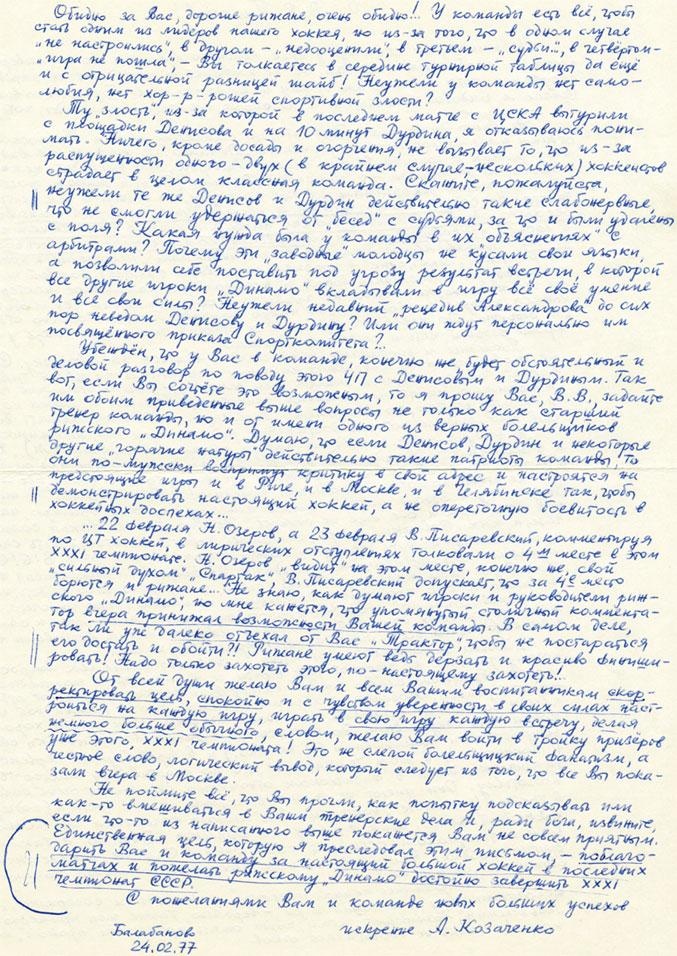 Обидно за Вас, дорогие рижане, очень обидно!.. У команды есть всё, чтобы
стать одним из лидеров нашего хоккея, но из-за того, что в одном случае
„не настроились“, в другом – „недооценили“, в третьем – „судьи“.., в четвёртом –
„игра не пошла“, – Вы толкаетесь в середине турнирной таблицы да ещё
и с отрицательной разницей шайб! Неужели у команды нет само-
любия, нет хор-р-рошей спортивной злости?
Ту „злость“, из-за которой в последнем матче с ЦСКА вытурили
с площадки Денисова и на 10 минут Дурдина, я отказываюсь пони-
мать. Ничего, кроме досады и огорчения, не вызывает то, что из-за
распущенности одного-двух (в крайнем случае – нескольких) хоккеистов
страдает в целом классная команда. Скажите, пожалуйста,
неужели те же Денисов и Дурдин действительно такие слабонервные,
что не смогли удержаться от „бесед“ с судьями, за что и были удалены
с поля? Какая нужда была у команды в их „объяснениях“ с
арбитрами? Почему эти „заводные“ молодцы не кусали свои языки,
а позволили себе поставить под угрозу результат встречи, в которой
все другие игроки „Динамо“ вкладывали в игру всё своё умение
и все свои силы? Неужели недавний „рецедив Александрова“ до сих
пор неведом Денисову и Дурдину? Или они ждут персонально им
посвящённого приказа Спорткомитета?..
Убеждён, что у Вас в команде, конечно же, будет обстоятельный и
деловой разговор по поводу этого ЧП с Денисовым и Дурдиным. Так
вот, если Вы сочтёте это возможным, то я прошу Вас, В.В., задайте
им обоим приведённые выше вопросы не только как старший
тренер команды, но и от имени одного из верных болельщиков
рижского „Динамо“. Думаю, что если Денисов, Дурдин и некоторые
другие „горячие натуры“ действительно такие патриоты команды, то
они по-мужски воспримут критику в свой адрес и настроятся на
предстоящие игры и в Риге, и в Москве, и в Челябинске так, чтобы
демонстрировать настоящий хоккей, а не опереточную боевитость в
хоккейных доспехах...
... 22 февраля Н. Озеров, а 23 февраля В. Писаревский, комментируя
по ЦТ хоккей, в лирических отступлениях толковали о 4-ом месте в этом
XXXI чемпионате. Н. Озеров „видит“ на этом месте, конечно же, свой
„сильный духом“ „Спартак“. В. Писаревский допускает, что за 4-е место
борются и рижане... Не знаю, как думают игроки и руководители риж-
ского „Динамо“, но мне кажется, что упомянутый столичный коммента-
тор вчера принижал возможности Вашей команды. В самом деле,
так ли уж далеко отъехал от Вас „Трактор“, чтобы не постараться
его достать и обойти?! Рижане умеют ведь дерзать и красиво финиши-
ровать! Надо только захотеть этого, по-настоящему захотеть!..
От всей души желаю Вам и всем Вашим воспитанникам скор-
ректировать цель, спокойно и с чувством уверенности в своих силах наст-
роиться на каждую игру, играть в свою игру каждую встречу, делая
немного больше обычного, словом, желаю Вам войти в тройку призёров
уже этого, XXXI чемпионата! Это не слепой болельщицкий фанатизм, а
честное слово, логический вывод, который следует из того, что все Вы пока-
зали вчера в Москве.
Не поймите всё, что Вы прочли, как попытку подсказывать или
как-то вмешиваться в Ваши тренерские дела и, ради бога, извините,
если что-то из написанного выше покажется Вам не совсем приятным.
Единственная цель, которую я преследовал этим письмом, – поблаго-
дарить Вас и команду за настоящий большой хоккей в последних
матчах и пожелать рижскому „Динамо“ достойно завершить XXXI
чемпионат СССР.
С пожеланиями Вам и команде новых больших успехов
искренне А. Козаченко
Балабаново
24.02.77